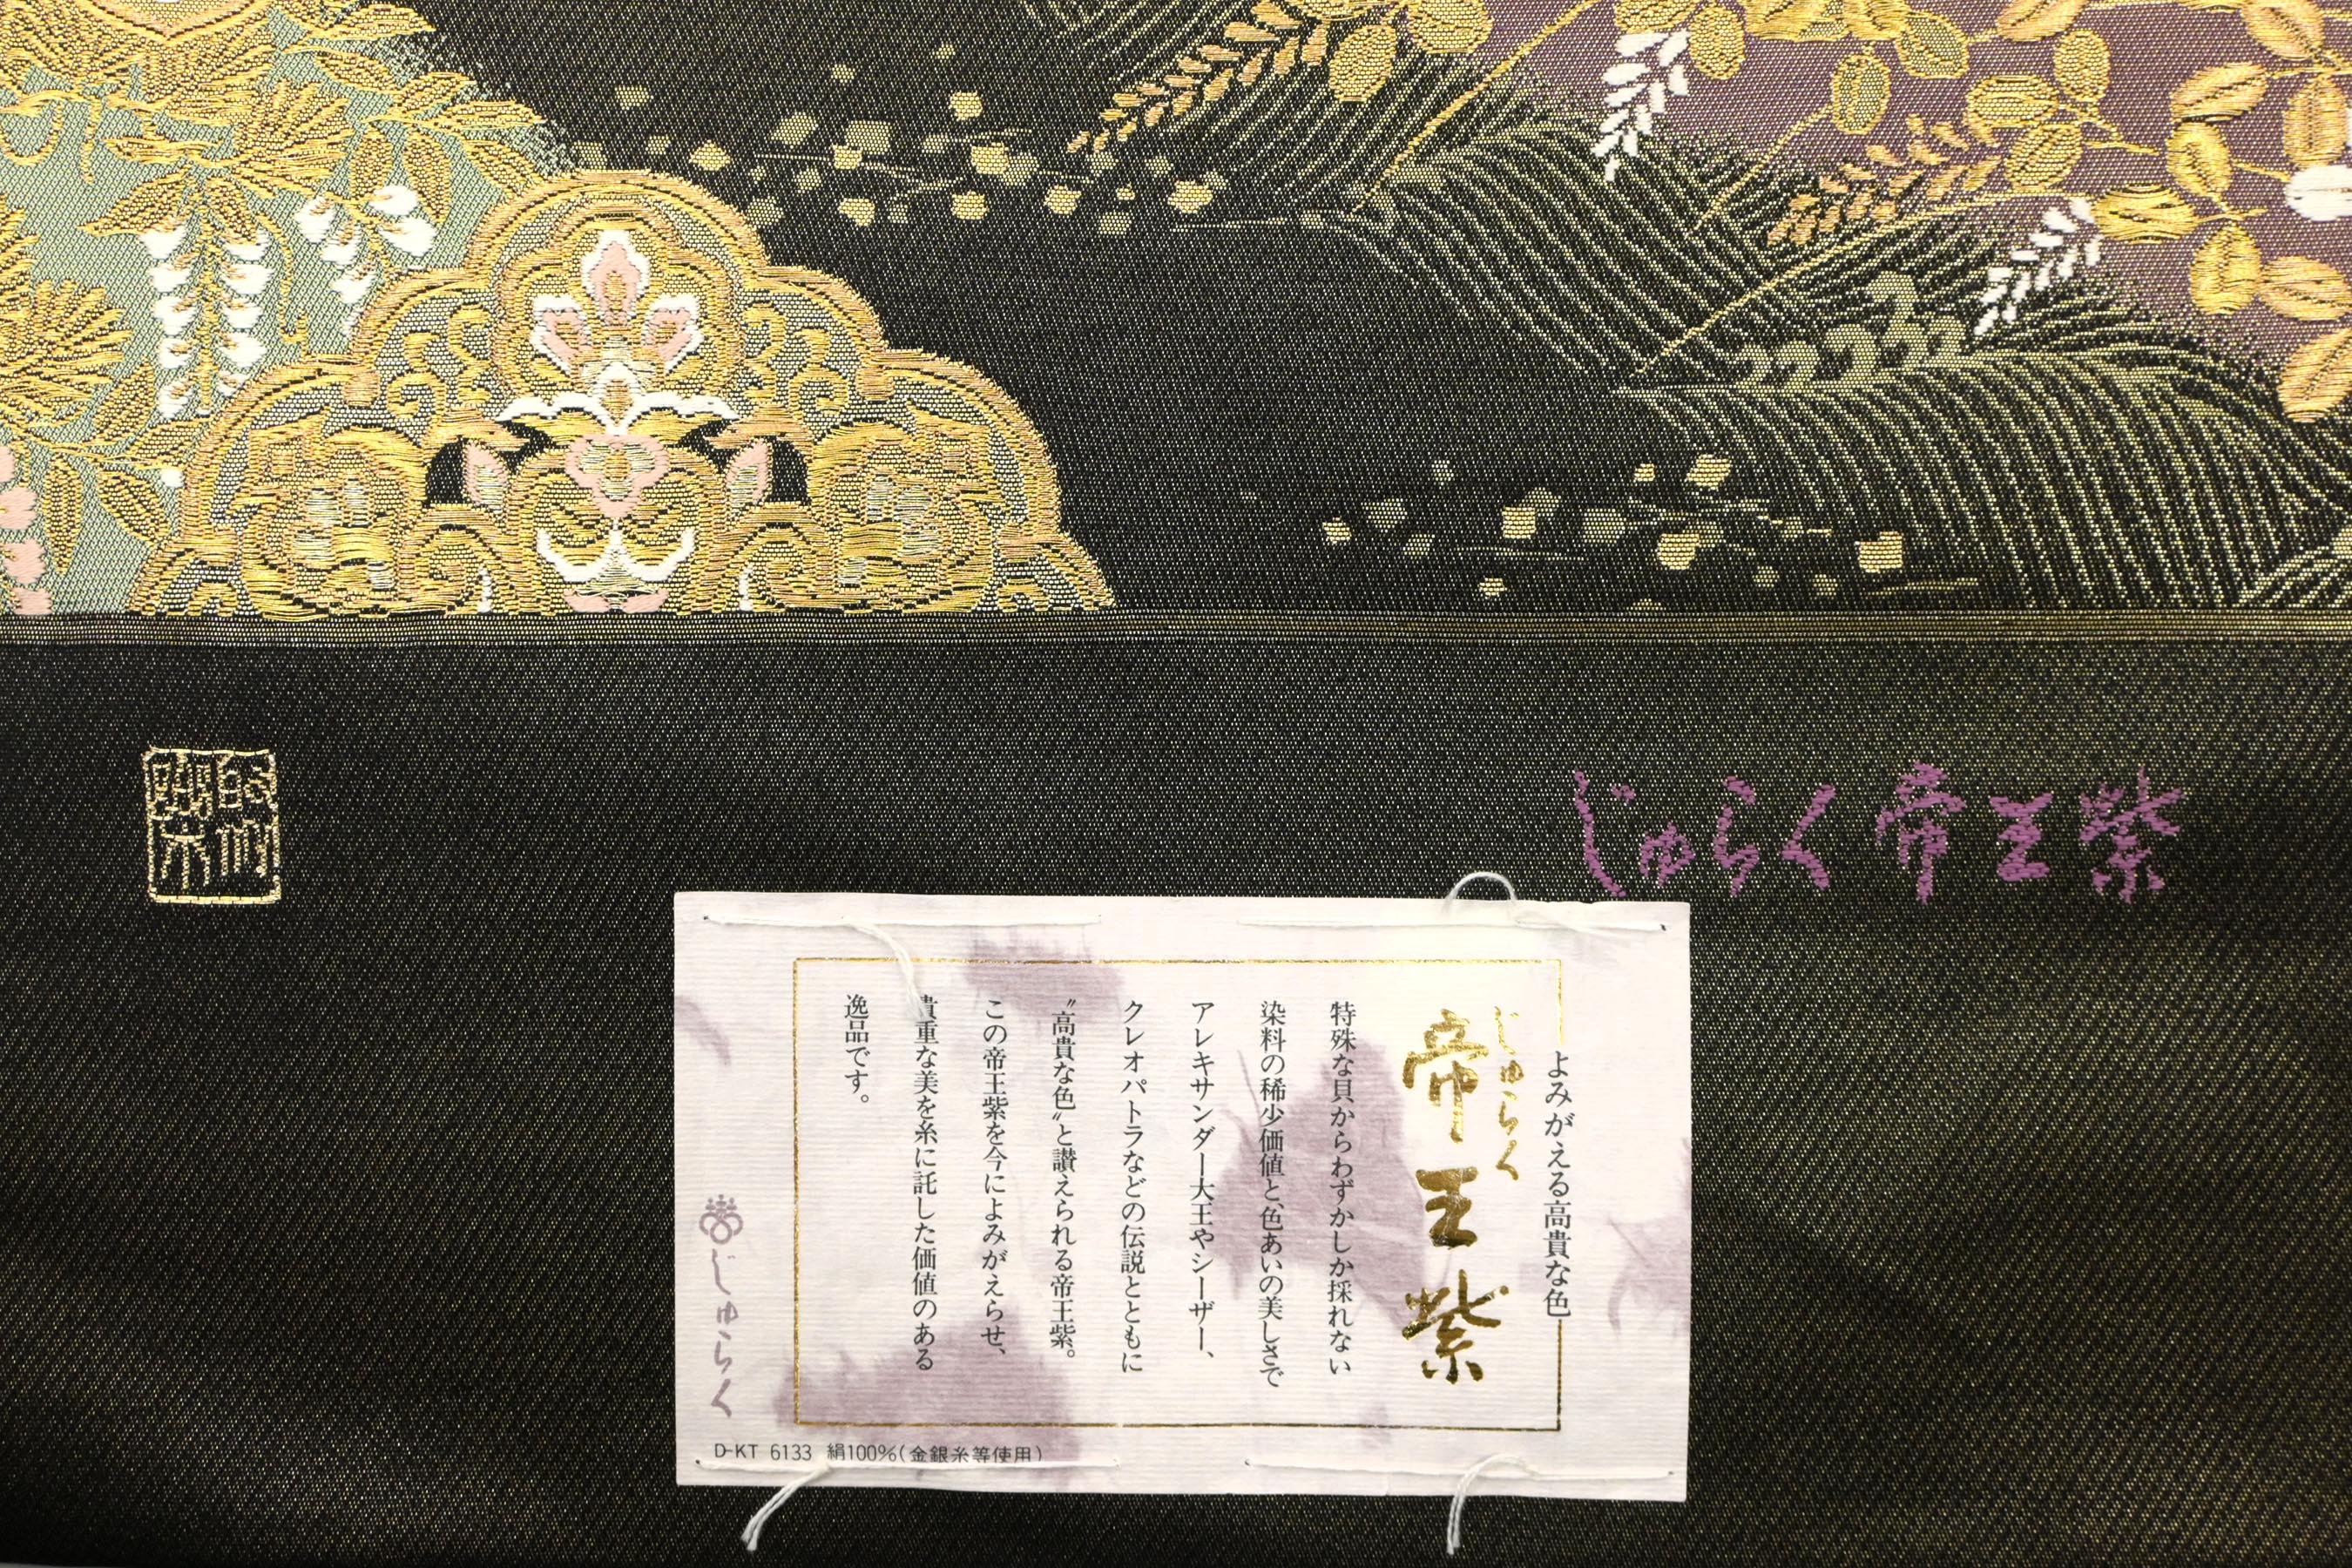 じゅらく帝王紫
よみがえる高貴な色
じゅらく
帝王紫
特殊な貝からわずかしか採れない
染料の稀少価値と、色あいの美しさで
アレキサンダー大王やシーザー、
クレオパトラなどの伝説とともに
〝高貴な色〟と讃えられる帝王紫。
この帝王紫を今によみがえらせ、
貴重な美を糸に託した価値のある
逸品です。
じゅらく
D-KT 6133 絹100%(金銀糸等使用)